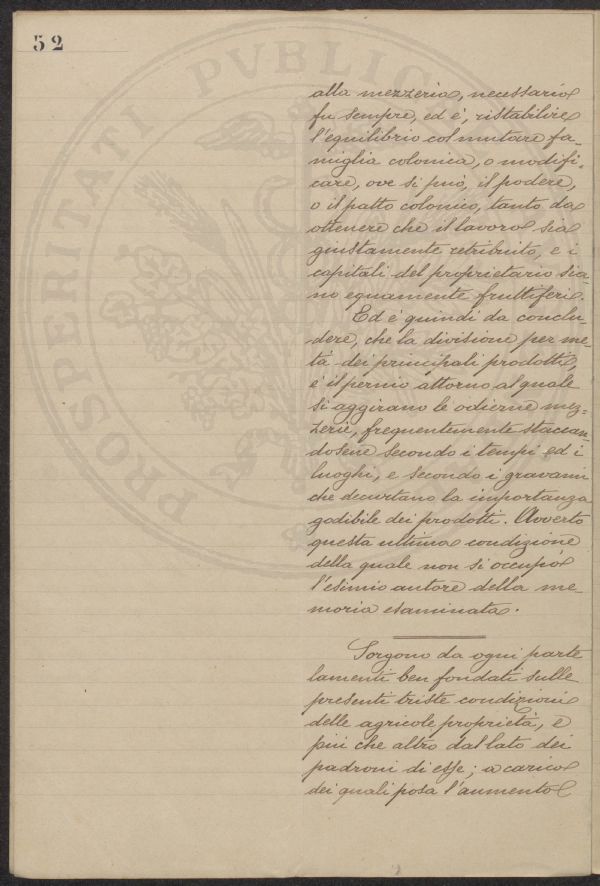 52
PROSPERITATI PVBLICAE
alla mezzeria, necessario
fu sempre, ed è, ristabilire
l'equilibrio col mutare fa-
miglia colonica, o modifi-
care, ove si può, il podere,
o il patto colonico, tanto da
ottenere che il lavoro sia
giustamente retribuito, e i
capitali del proprietario sia-
no equamente fruttiferi.
Ed è quindi da conclu-
dere, che la divisione per me-
tà dei principali prodotti,
è il pernio attorno al quale
si aggirano le odierne mez-
zerie, frequentemente staccan-
dosene secondo i tempi ed i
luoghi, e secondo i gravami
che decurtano la importanza
godibile dei prodotti. Avverto
questa ultima condizione
della quale non si occupò
l'esimio autore della me-
moria esaminata.
Sorgono da ogni parte
lamenti ben fondati sulle
presenti triste condizioni
delle agricole proprietà, e
più che altro dal lato dei
padroni di esse; a carico
dei quali posa l'aumento